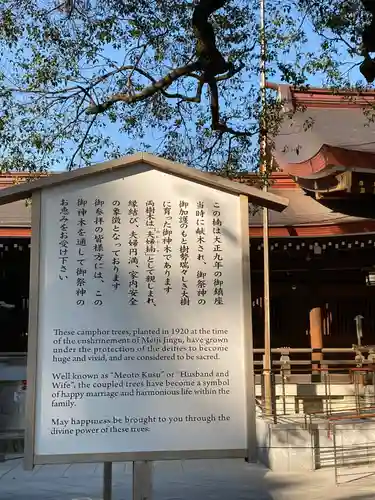 この楠は大正九年の御鎮座
当時に献木され、御祭神の
御加護のもと樹勢瑞々しき大樹
に育った御神木であります
両樹は「夫婦楠」として親しまれ、
縁結び、夫婦円満、家内安全
の象徴となっております
参拝の皆様方には、この
御神木を通して御祭神の
お恵みをお受け下さい
These camphor trees, planted in 1920 at the time
of the enshrinement of Meiji Jingu, have grown
under the protection of the deities to become
huge and, and are considered to be sacred.
Well known as "Meoto Kusu" or "Husband and
Wife", the coupled trees have become a symbol
of happy marriage and harmonious life within the
family.
May happiness be brought to you through the
divine power of these trees.